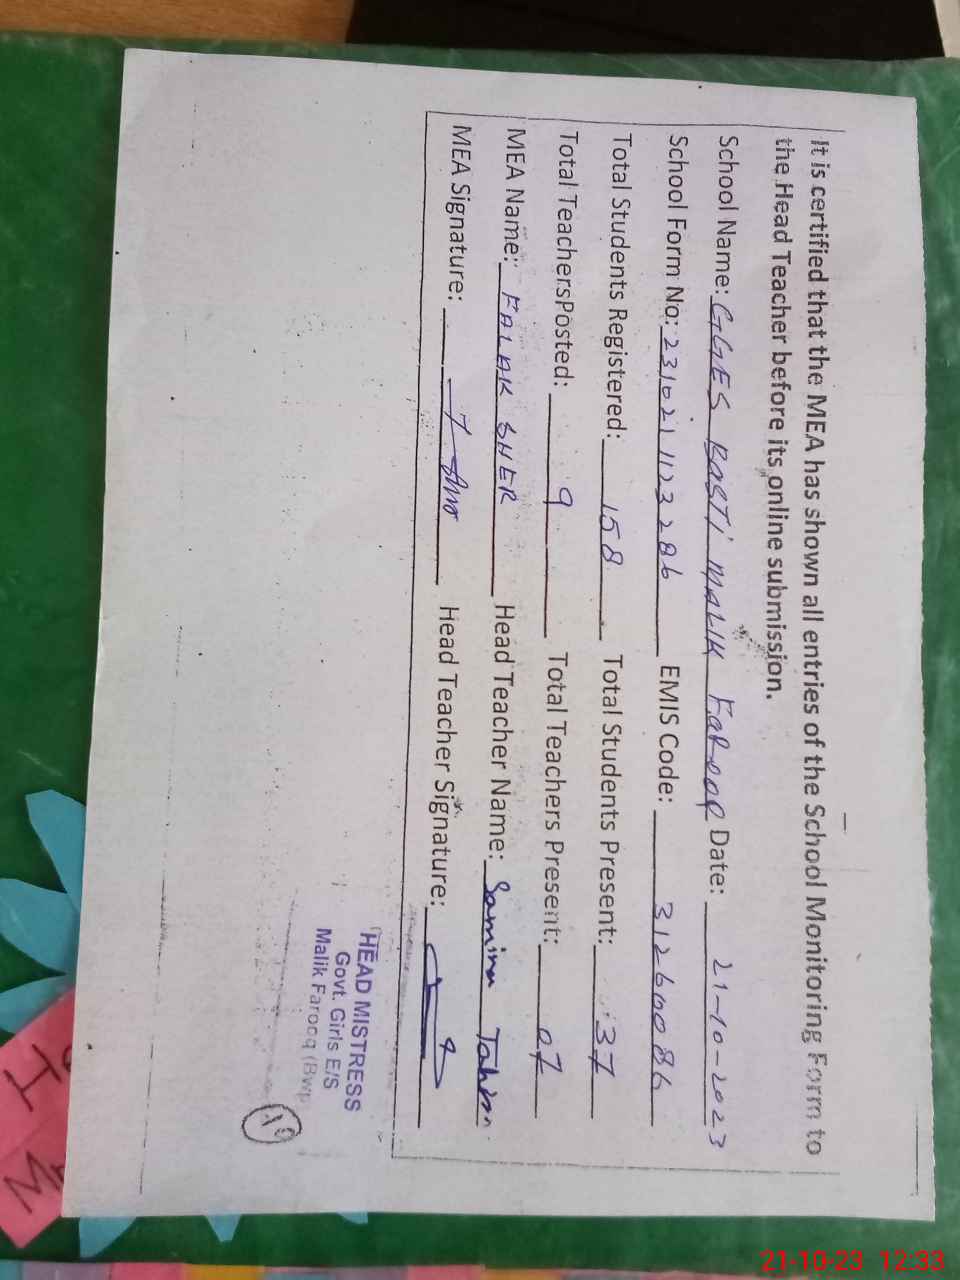 It is certified that the MEA has shown all entries of the School Monitoring Form to
the Head Teacher before its online submission.
School Name: GGES BASTI MALIK FAROOQ Date: 21-10-2023
School Form No: 231021 1123286 EMIS Code: 31260086
Total Students Registered: 158 Total Students Present: 37
Total TeachersPosted: 9 Total Teachers Present: 07
MEA Name: FALAK SHER Head Teacher Name: Samina
MEA Signature: Head Teacher Signature:
HEAD MISTRESS
Govt. Girls E/S
Malik Farooq (Bwp
H
21-10-23 12:33